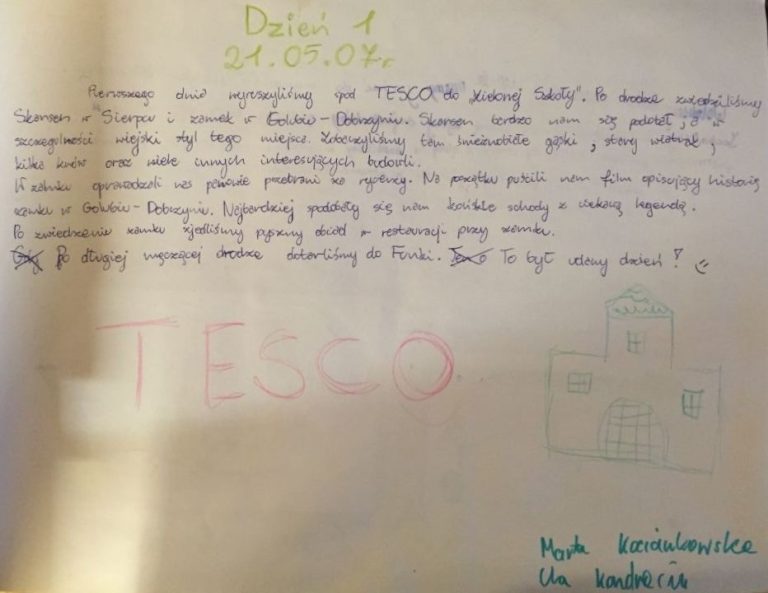 Dzień 1
21.05.07r.
Pierwszego dnia wyruszyliśmy spod TESCO do „Zielonej Szkoły". Po drodze zwiedziliśmy
Skansen w Sierpcu i zamek w Golubiu-Dobrzyniu. Skansen bardzo nam się podobał, a w
szczególności wiejski styl tego miejsca. Zobaczyliśmy tam śnieżnobiałe gąski, stary wiatrak,
kilka oraz wiele innych interesujących budowli.
W zamku oprowadzali nas panowie przebrani za rycerzy. Na początku puścili nam film opisujący historię
zamku w Golubiu-Dobrzyniu. Najbardziej spodobały się nam schody z ciekawą legendą.
Po zwiedzeniu zamku zjedliśmy pyszny obiad w restauracji przy zamku.
Po długiej męczącej drodze dotarliśmy do Funki. To był udany dzień!
TESCO
Marta
Ula